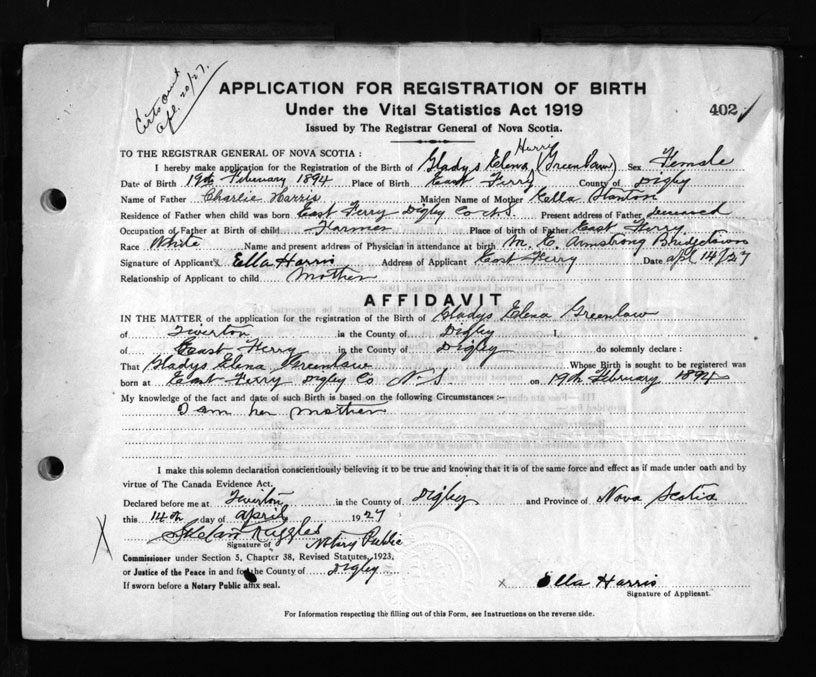 Apl. 20/27.
APPLICATION FOR REGISTRATION OF BIRTH
Under the Vital Statistics Act 1919
402
Issued by The Registrar General of Nova Scotia.
TO THE REGISTRAR GENERAL OF NOVA SCOTIA :
Harris
I hereby make application for the Registration of the Birth of Gladys Elena (Greenlaw) Sex Female
Date of Birth 19th February 1894 Place of Birth East Ferry County of Digby
Name of Father Charlie Harris Maiden Name of Mother Ella Stanton
Residence of Father when child was born East Ferry Digby Co N.S. Present address of Father deceased
Occupation of Father at Birth of child Farmer Place of birth of Father East Ferry
Race White Name and present address of Physician in attendance at birth M. E. Armstrong Bridgetown
Signature of Applicant x Ella Harris Address of Applicant East Ferry Date Apl 14/27
Relationship of Applicant to child Mother
AFFIDAVIT
IN THE MATTER of the application for the registration of the Birth of Gladys Elena Greenlaw
of Tiverton in the County of Digby I,
of East Ferry in the County of Digby do solemnly declare :
That Gladys Elena Greenlaw Whose Birth is sought to be registered was
born at East Ferry Digby Co N.S. on 19th February 1894
My knowledge of the fact and date of such Birth is based on the following Circumstances :-
I am her mother
I make this solemn declaration conscientiously believing it to be true and knowing that it is of the same force and effect as if made under oath and by
virtue of The Canada Evidence Act.
Declared before me at Tiverton in the County of Digby and Province of Nova Scotia
this 14th day of April 1927
X Ruggles
Signature of Notary Public
Commissioner under Section 5, Chapter 38, Revised Statutes, 1923,
or Justice of the Peace in and for the County of Digby
If sworn before a Notary Public affix seal.
x Ella Harris
Signature of Applicant.
For Information respecting the filling out of this Form, see Instructions on the reverse side.